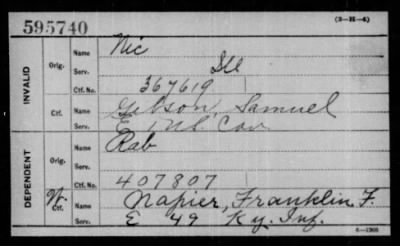 595740
(3-H-4)
INVALID
Orig.
Name Nic
Serv. Ill
Ctf. No. 367619
Ctf.
Name Gibson, Samuel
Serv. E U.S. Cav
DEPENDENT
Orig.
Name Rab
Serv.
Ctf. No. 407807
W. Ctf.
Name Napier, Franklin F.
Serv. E 49 Ky. Inf.